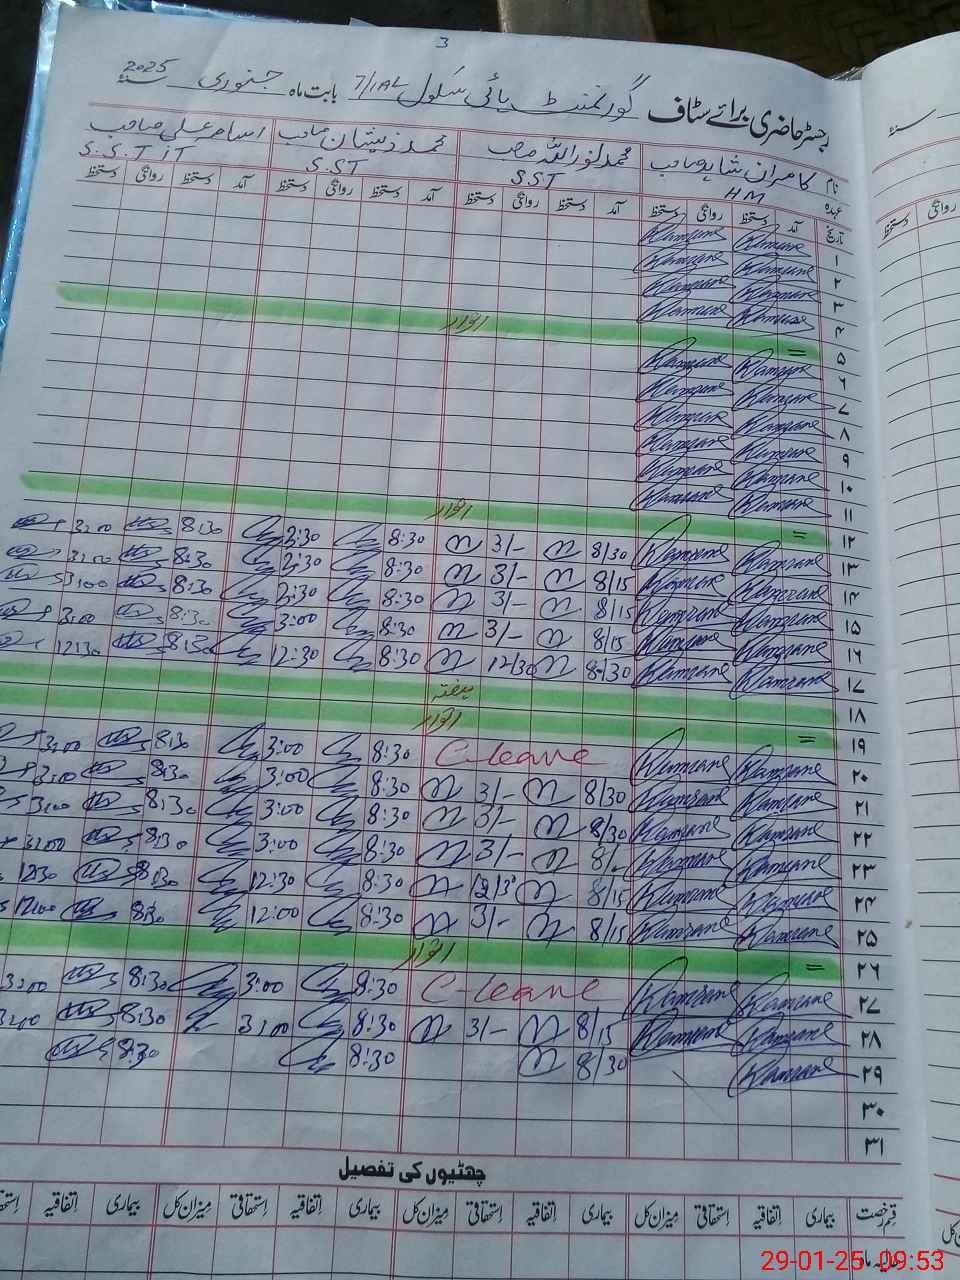 3
رجسٹر حاضری برائے سٹاف گورنمنٹ ہائی سکول 7/1AL بابت ماہ جنوری سنہ 2025
نام کامران شاہد صاحب محمد نور اللہ صاحب محمد ذیشان صاحب اسامہ علی صاحب
عہدہ HM SST S.ST S.S.T IT
تاریخ آمد دستخط روانگی دستخط آمد دستخط روانگی دستخط آمد دستخط روانگی دستخط آمد دستخط روانگی دستخط
۱ Kamrane Kamrane
۲ Kamrane Kamrane
۳ Kamrane Kamrane
۴ Kamrane Kamrane
۵ = اتوار
۶ Kamrane Kamrane
۷ Kamrane Kamrane
۸ Kamrane Kamrane
۹ Kamrane Kamrane
۱۰ Kamrane Kamrane
۱۱ Kamrane Kamrane
۱۲ = اتوار
۱۳ Kamrane Kamrane 8/30 3/- 8:30 2:30 8:30 3:00
۱۴ Kamrane Kamrane 8/15 3/- 8:30 2:30 8:30 3:00
۱۵ Kamrane Kamrane 8/15 3/- 8:30 2:30 8:30 3:00
۱۶ Kamrane Kamrane 8/15 3/- 8:30 3:00 8:30 3:00
۱۷ Kamrane Kamrane 8/30 12/30 8:30 12:30 8:30 12:30
۱۸ ہفتہ
۱۹ = اتوار
۲۰ Kamrane Kamrane C-leave 8:30 3:00 8:30 3:00
۲۱ Kamrane Kamrane 8/30 3/- 8:30 3:00 8:30 3:00
۲۲ Kamrane Kamrane 8/30 3/- 8:30 3:00 8:30 3:00
۲۳ Kamrane Kamrane 8/- 3/- 8:30 3:00 8:30 3:00
۲۴ Kamrane Kamrane 8/15 12/30 8:30 12:30 8:30 1230
۲۵ Kamrane Kamrane 8/15 3/- 8:30 12:00 8:30 12:00
۲۶ = اتوار
۲۷ Kamrane Kamrane C-leave 8:30 3:00 8:30 3:00
۲۸ Kamrane Kamrane 8/15 3/- 8:30 3:00 8:30 3:00
۲۹ Kamrane 8/30 8:30 8:30
۳۰
۳۱
چھٹیوں کی تفصیل
قسم رخصت بیماری اتفاقیہ استحقاقی میزان کل بیماری اتفاقیہ استحقاقی میزان کل بیماری اتفاقیہ استحقاقی میزان کل بیماری اتفاقیہ
29-01-25 09:53